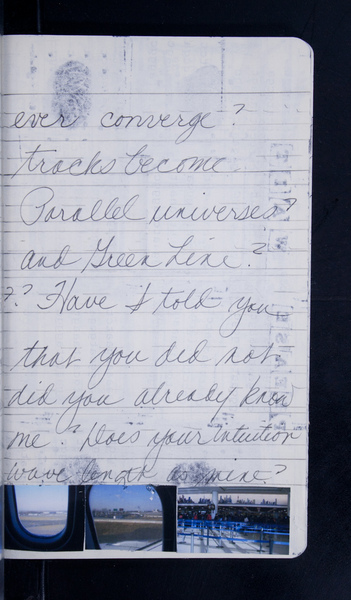 ever converge?
tracks become
Parallel universes?
and Green Line?
?? Have I told you
that you did not
did you already know
me? Does your intuition
wave length as mine?